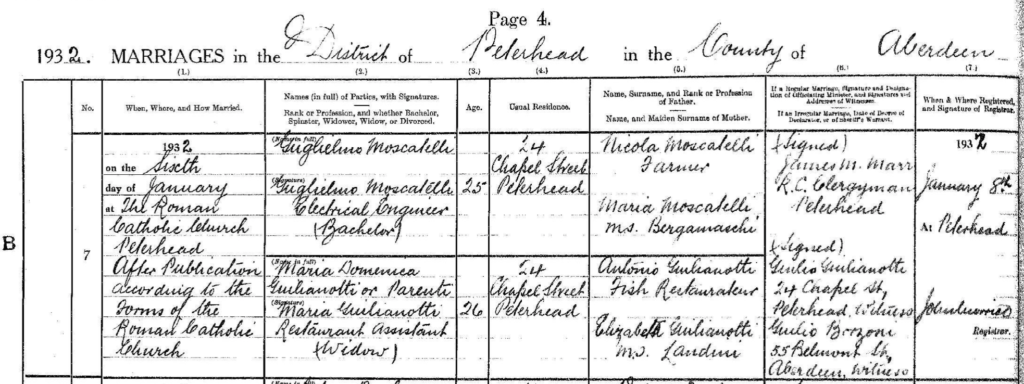 Page 4.
1932. MARRIAGES in the District of Peterhead in the County of Aberdeen
(1.) (2.) (3.) (4.) (5.) (6.) (7.)
No.
When, Where, and How Married.
Names (in full) of Parties, with Signatures.
Rank or Profession, and whether Bachelor,
Spinster, Widower, Widow, or Divorced.
Age.
Usual Residence.
Name, Surname, and Rank or Profession
of Father.
Name, and Maiden Surname of Mother.
If a Regular Marriage, Signature and Designa-
tion of Officiating Minister, and Signatures and
Addresses of Witnesses.
If an Irregular Marriage, Date of Decree of
Declarator, or of Sheriff's Warrant.
When & Where Registered,
and Signature of Registrar.
B
7
1932
on the Sixth
day of January
at The Roman
Catholic Church
Peterhead
After Publication
according to the
Forms of the
Roman Catholic
Church
(Name in full)
Guglielmo Moscatelli
(Signature)
Guglielmo Moscatelli
Electrical Engineer
(Bachelor)
25
24
Chapel Street
Peterhead
Nicola Moscatelli
Farmer
Maria Moscatelli
m.s. Bergamaschi
(Signed)
James M. Marr
R.C. Clergyman
Peterhead
(Name in full)
Maria Domenica
Giulianotti or Parenti
(Signature)
Maria Giulianotti
Restaurant Assistant
(Widow)
26
24
Chapel Street
Peterhead
Antonio Giulianotti
Fish Restaurateur
Elizabeth Giulianotti
m.s. Landini
(Signed)
Giulio Giulianotti
24 Chapel St,
Peterhead, Witness
Giulio Borzoni
55 Belmont St,
Aberdeen, Witness
1932
January 8th
At Peterhead
Registrar.